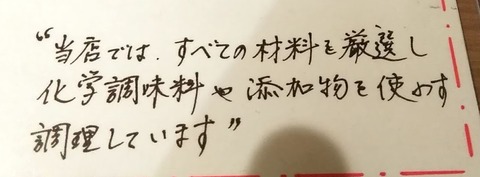 “当店では、すべての材料を厳選し
化学調味料や添加物を使わず
調理しています”